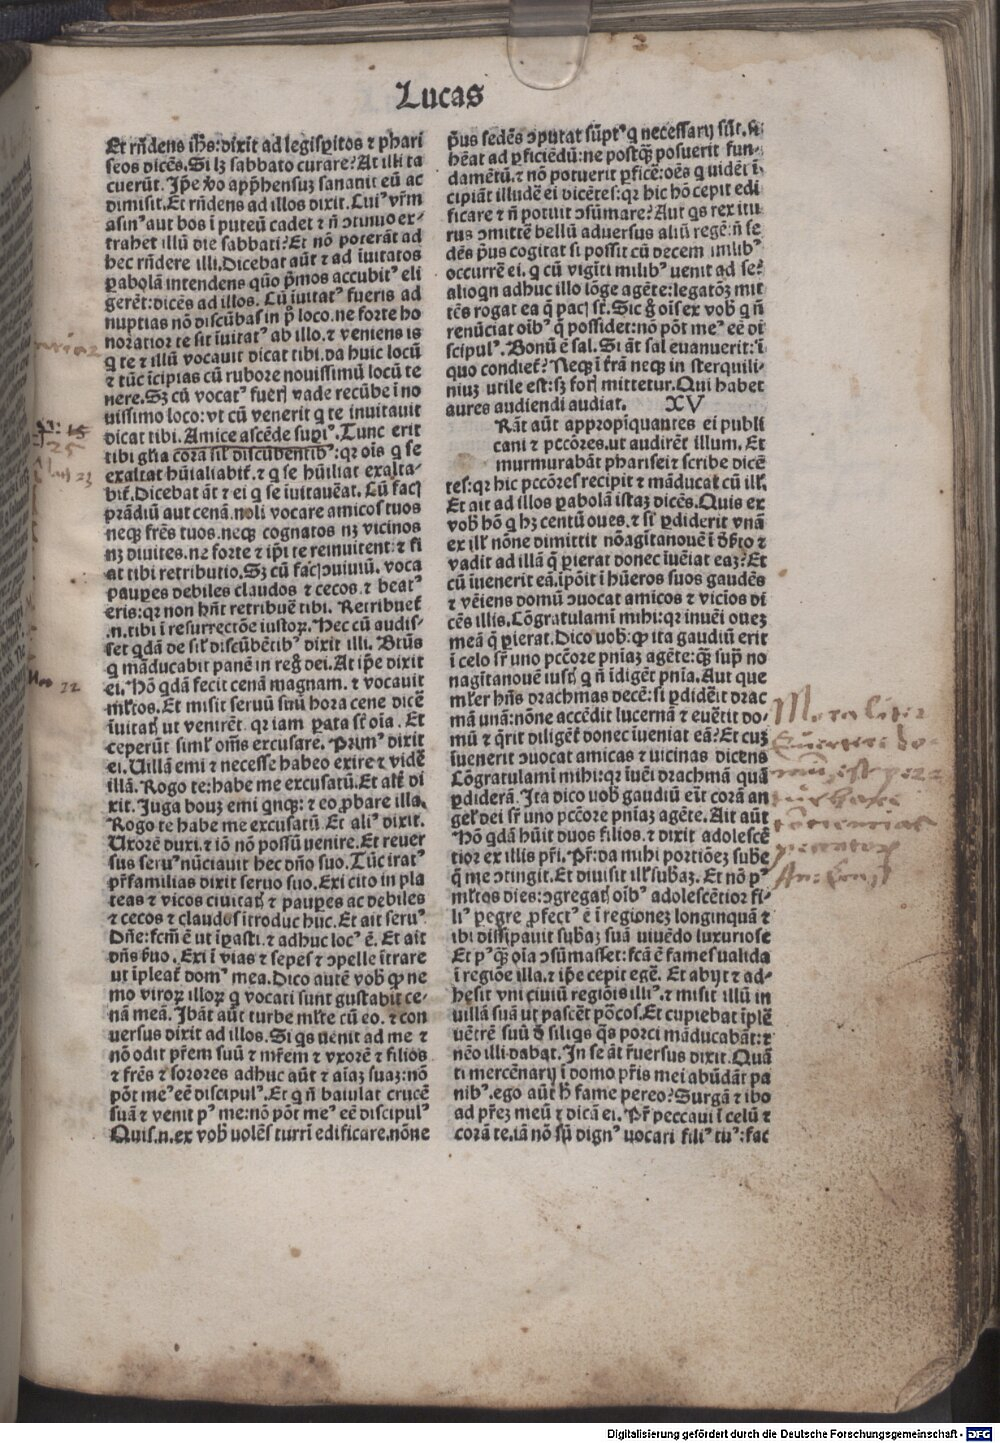 Lucas
Et rñdens ihs: dixit ad legispitos ⁊ phari
seos dicẽs. Si lꝫ sabbato curare? At illi ta
cuerũt. Ip̃e ꝟo app̃hensuꝫ sanauit eũ ac
dimisit. Et rñdens ad illos dixit. Cuiꝰ vr̃m
asinꝰ aut bos ĩ puteũ cadet ⁊ ñ ↄtinuo ex-
trahet illũ die sabbati? Et nõ poterãt ad
hec rñdere illi. Dicebat aũt ⁊ ad ĩuitatos
ꝑabolã intendens quõ p̃mos accubitꝰ eli
gerẽt: dicẽs ad illos. Cũ ĩuitatꝰ fueris ad
nuptias nõ discũbas in p̃ loco. ne forte ho
noratior te sit ĩuitatꝰ ab illo. ⁊ veniens is
q̃ te ⁊ illũ vocauit dicat tibi. da huic locũ
⁊ tũc ĩcipias cũ rubore nouissimũ locũ te
nere. Sꝫ cũ vocatꝰ fuerꝭ vade recũbe ĩ no
uissimo loco: vt cũ venerit q̃ te inuitauit
dicat tibi. Amice ascẽde supiꝰ. Tunc erit
tibi gl̃ia corã sil̃ discũbentibꝰ: qꝛ oĩs q̃ se
exaltat hũiliabit̃. ⁊ q̃ se hũiliat exalta-
bit̃. Dicebat ãt ⁊ ei q̃ se ĩuitauẽat. Cũ facꝭ
prãdiũ aut cenã. noli vocare amicos tuos
neqꝫ frẽs tuos. neqꝫ cognatos nꝫ vicinos
nꝫ diuites. ne forte ⁊ ip̃i te reinuitent: ⁊ fi
at tibi retributio. Sꝫ cũ facꝭ ↄuiuiũ. voca
pauꝑes debiles claudos ⁊ cecos. ⁊ beatꝰ
eris: qꝛ non hñt retribuẽ tibi. Retribuet̃
.n. tibi ĩ resurrectõe iustoꝝ. Hec cũ audis-
set q̃dã de sil̃ discũbẽtibꝰ dixit illi. Btũs
q̃ mãducabit panẽ in reg̃ dei. At ip̃e dixit
ei. Hõ q̃dã fecit cenã magnam. ⁊ vocauit
ml̃tos. Et misit seruũ suũ hora cene dicẽ
ĩuitatꝭ ut venirẽt. qꝛ iam ꝑata sr̃ oĩa. Et
ceperũt siml̃ om̃s excusare. Primꝰ dixit
ei. Uillã emi ⁊ necesse habeo exire ⁊ vidẽ
illã. Rogo te: habe me excusatũ. Et alt̃ di
xit. Juga bouꝫ emi qnqꝫ: ⁊ eo ꝓbare illa.
Rogo te habe me excusatũ. Et aliꝰ dixit.
Uxorẽ duxi. ⁊ iõ nõ possũ uenire. Et reuer
sus seruꝰ nũciauit hec dño suo. Tũc iratꝰ
pr̃familias dixit seruo suo. Exi cito in pla
teas ⁊ vicos ciuitatꝭ ⁊ pauꝑes ac debiles
⁊ cecos ⁊ claudos ĩtroduc huc. Et ait seruꝰ.
Dñe: fcm̃ ẽ ut ĩꝑasti. ⁊ adhuc locꝰ ẽ. Et ait
dñs ẜuo. Exi ĩ vias ⁊ sepes ⁊ ↄpelle ĩtrare
ut ĩpleat̃ domꝰ mea. Dico autẽ vob̃ ꝙ ne
mo viroꝝ illoꝝ q̃ vocati sunt gustabit ce-
nã meã. Ibãt aũt turbe ml̃te cũ eo. ⁊ con
uersus dixit ad illos. Si q̃s uenit ad me ⁊
nõ odit pr̃em suũ ⁊ mr̃em ⁊ vxorẽ ⁊ filios
⁊ frẽs ⁊ sorores adhuc aũt ⁊ aĩaꝫ suaꝫ: nõ
põt meꝰ eẽ discipulꝰ. Et q̃ ñ baiulat crucẽ
suã ⁊ venit pꝰ me: nõ põt meꝰ eẽ discipulꝰ
Quis .n. ex vob̃ uolẽs turrĩ edificare. nõne
p̃us sedẽs ↄputat sũptꝰ q̃ necessarij sũt. si
hẽat ad ꝑficiẽdũ: ne postqꝫ̃ posuerit fun-
damẽtũ. ⁊ nõ potuerit ꝑficẽ: oẽs q̃ uidẽt ĩ-
cipiãt illudẽ ei dicẽtes: qꝛ hic hõ cepit edi
ficare ⁊ ñ potuit ↄsũmare? Aut q̃s rex itu
rus ↄmittẽ bellũ aduersus aliũ regẽ: ñ se
dẽs p̃us cogitat si possit cũ decem milibꝰ
occurrẽ ei. q̃ cũ vigĩti milibꝰ uenit ad se?
alioqn adhuc illo lõge agẽte: legatõꝫ mit
tẽs rogat ea q̃ pacꝭ sr̃. Sic g̃ oĩs ex vob̃ q̃ ñ
renũciat oĩbꝰ q̃ possidet: nõ põt meꝰ eẽ di
scipulꝰ. Bonũ ẽ sal. Si ãt sal euanuerit: ĩ
quo condiet̃? Neqꝫ ĩ t̃rã neqꝫ in sterquili-
niuꝫ utile est: sꝫ forꝭ mittetur. Qui habet
aures audiendi audiat. XV
Rãt aũt appropĩquantes ei publi
cani ⁊ pccõres. ut audirẽt illum. Et
murmurabãt pharisei ⁊ scribe dicẽ
tes: qꝛ hic pccõres recipit ⁊ mãducat cũ ill̃.
Et ait ad illos ꝑabolã istaꝫ dicẽs. Quis ex
vob̃ hõ q̃ hꝫ centũ oues. ⁊ si ꝑdiderit vnã
ex ill̃ nõne dimittit nõagĩtanouẽ ĩ dẽẜto ⁊
vadit ad illã q̃ ꝑierat donec ĩuẽiat eaꝫ? Et
cũ ĩuenerit eã. ĩpõit ĩ hũeros suos gaudẽs
⁊ vẽiens domũ ↄuocat amicos ⁊ vicĩos di
cẽs illis. Cõgratulami mihi: qꝛ inuẽi oueꝫ
meã q̃ ꝑierat. Dico uob̃: ꝙ ita gaudiũ erit
ĩ celo sr̃ uno pccõre pniaꝫ agẽte: qꝫ̃ sup̃ no
nagĩtanouẽ iustꝭ q̃ ñ ĩdigẽt pnĩa. Aut que
ml̃er hñs drachmas decẽ: si ꝑdidẽit drac
mã unã: nõne accẽdit lucernã ⁊ euẽtit do-
mũ ⁊ q̃rit diligẽt̃ donec ĩueniat eã? Et cuꝫ
ĩuenerit ↄuocat amicas ⁊ uicinas dicens
Cõgratulami mihi: qꝛ ĩuẽi drachmã quã
ꝑdiderã. Ita dico uob̃ gaudiũ eĩt corã an
gel̃ dei sr̃ uno pccõre pniaꝫ agẽte. Ait aũt
Hõ q̃dã hũit duos filios. ⁊ dixit adolescẽ
tior ex illis pr̃i. Pr̃: da mihi portiõeꝫ sub̃e
q̃ me ↄtingit. Et diuisit ill̃ sub̃aꝫ. Et nõ pꝰ
ml̃tos dies: ↄgregatꝭ oĩbꝰ adolescẽtior fi-
liꝰ pegre ꝓfectꝰ ẽ ĩ regioneꝫ longinquã ⁊
ibi dissipauit sub̃aꝫ suã uiuẽdo luxuriose
Et pꝰqꝫ̃ oĩa ↄsũmasset: fcã ẽ fames ualida
ĩ regiõe illa. ⁊ ip̃e cepit egẽ. Et abijt ⁊ ad-
hesit vni ciuiũ regiõis illiꝰ. ⁊ misit illũ in
uillã suã ut pascẽt põcos. Et cupiebat ĩplẽ
uẽtrẽ suũ ð siliqs q̃s porci mãducabãt: ⁊
nẽo illi dabat. In se ãt r̃uersus dixit. Quã
ti mercẽnarij ĩ domo pr̃is mei abũdãt pa
nibꝰ. ego aũt h̃ fame pereo? Surgã ⁊ ibo
ad pr̃eꝫ meũ ⁊ dicã ei. Pr̃ peccaui ĩ celũ ⁊
corã te. iã nõ sũ dignꝰ uocari filiꝰ tuꝰ: fac
Moraliter
Digitalisierung gefördert durch die Deutsche Forschungsgemeinschaft - DFG